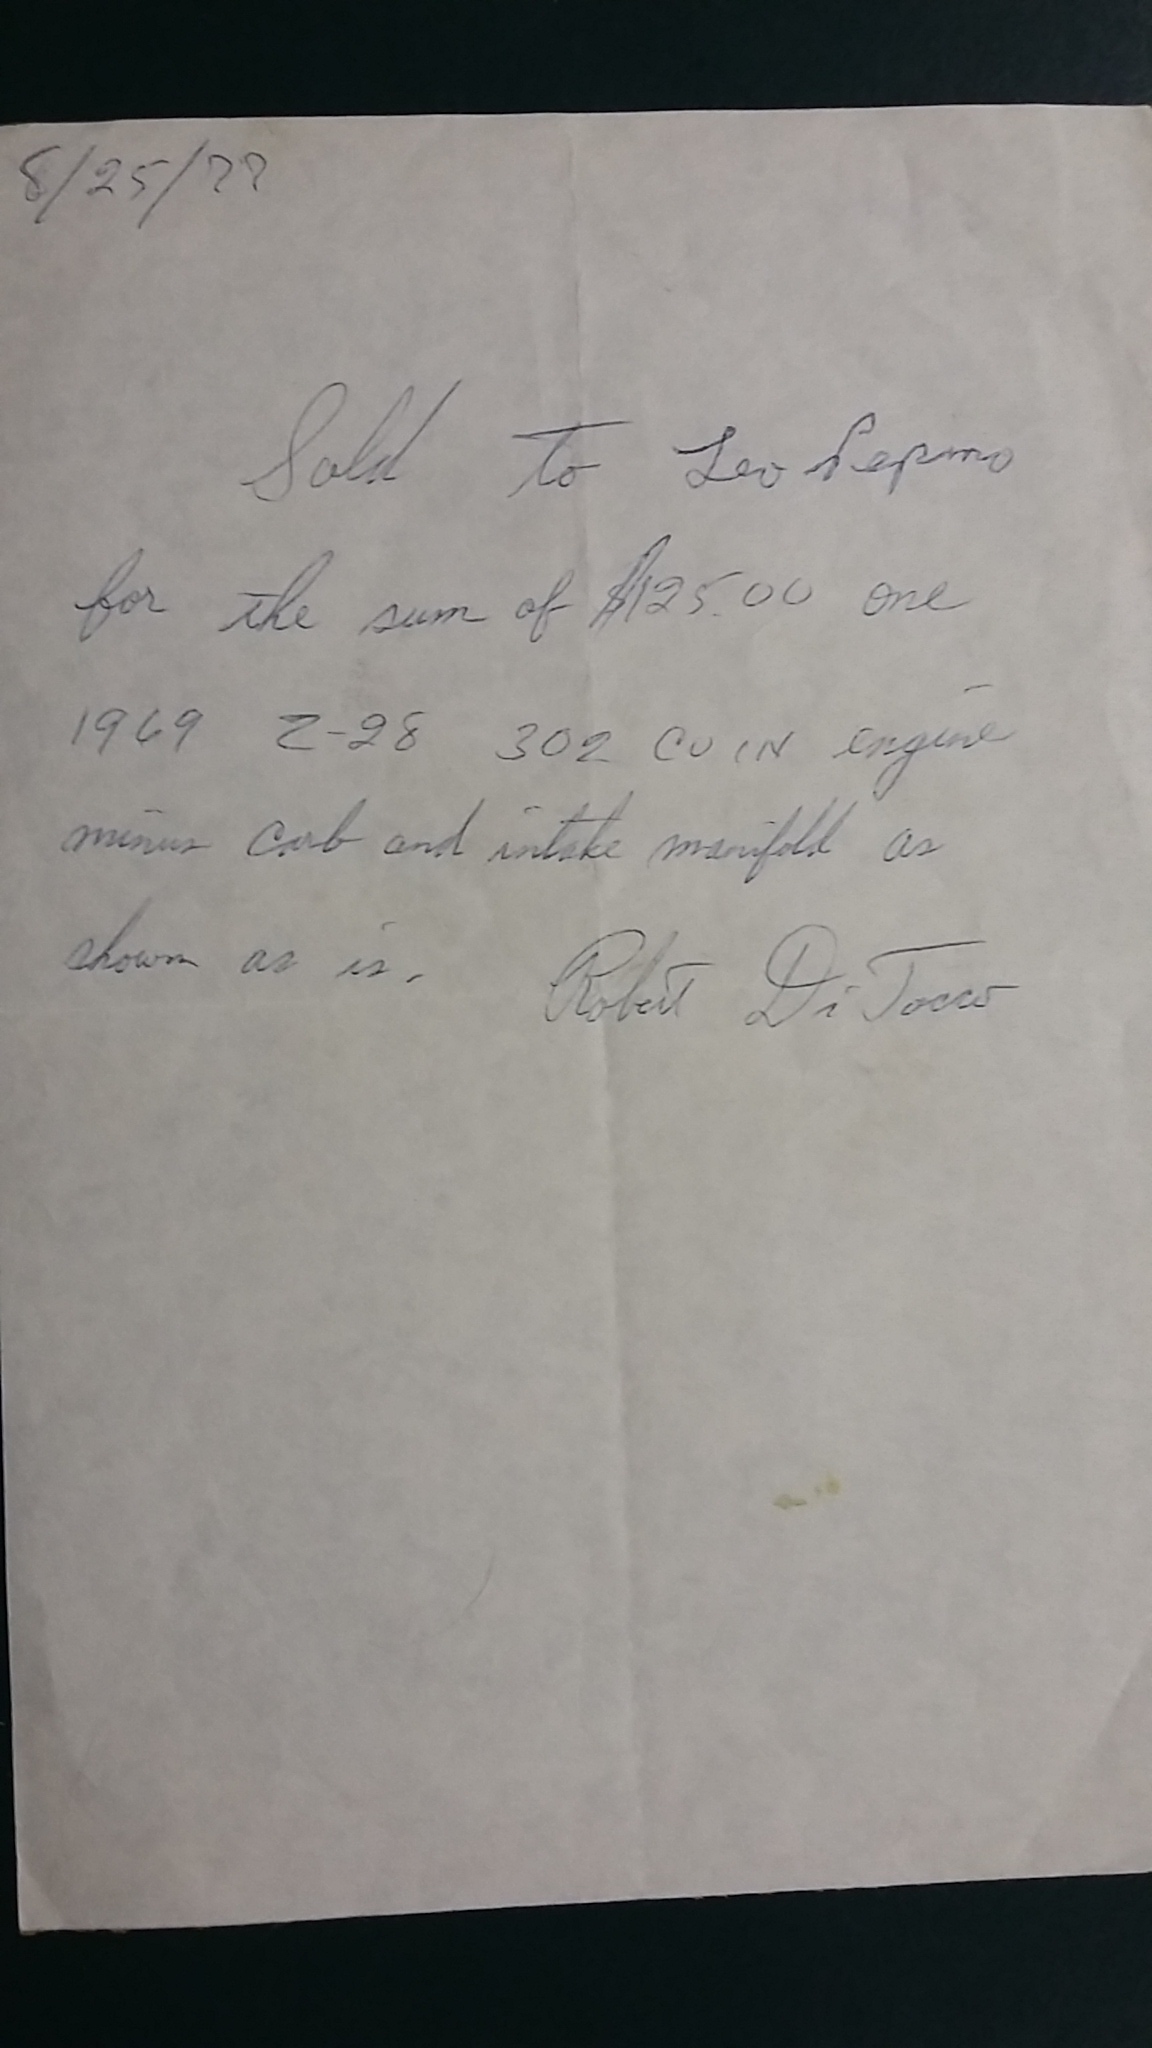 8/25/77
Sold to Leo
for the sum of $125.00 one
1969 Z-28 302 CU IN engine
minus carb and intake manifold as
shown as is. Robert DiTocco